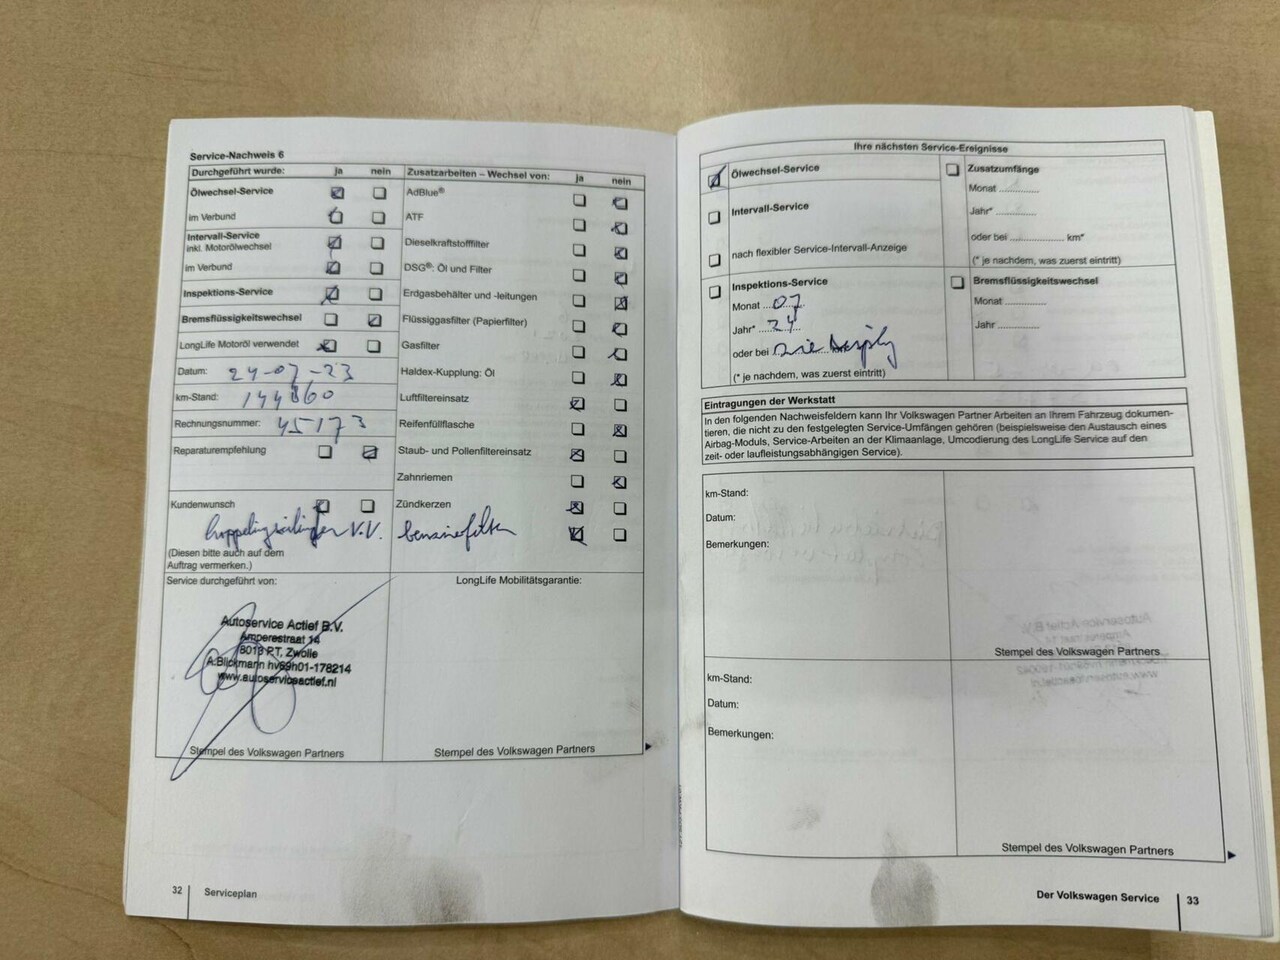 Service-Nachweis 6
Durchgeführt wurde: ja nein
Ölwechsel-Service
im Verbund
Intervall-Service
inkl. Motorölwechsel
im Verbund
Inspektions-Service
Bremsflüssigkeitswechsel
LongLife Motoröl verwendet
Datum: 24-07-23
km-Stand: 144860
Rechnungsnummer: 45173
Reparaturempfehlung
Kundenwunsch
V.V.
(Diesen bitte auch auf dem
Auftrag vermerken.)
Zusatzarbeiten – Wechsel von: ja nein
AdBlue®
ATF
Dieselkraftstofffilter
DSG®: Öl und Filter
Erdgasbehälter und -leitungen
Flüssiggasfilter (Papierfilter)
Gasfilter
Haldex-Kupplung: Öl
Luftfiltereinsatz
Reifenfüllflasche
Staub- und Pollenfiltereinsatz
Zahnriemen
Zündkerzen
benzinefilter
Service durchgeführt von:
Autoservice Actief B.V.
Amperestraat 14
8013 PT, Zwolle
A.Blickmann hv69h01-178214
www.autoserviceactief.nl
Stempel des Volkswagen Partners
LongLife Mobilitätsgarantie:
Stempel des Volkswagen Partners
32 Serviceplan
Ihre nächsten Service-Ereignisse
Ölwechsel-Service
Intervall-Service
nach flexibler Service-Intervall-Anzeige
Inspektions-Service
Monat ... 07
Jahr* ... 24
oder bei zie display
(* je nachdem, was zuerst eintritt)
Zusatzumfänge
Monat ..............
Jahr* ..............
oder bei .................. km*
(* je nachdem, was zuerst eintritt)
Bremsflüssigkeitswechsel
Monat ..............
Jahr ..............
Eintragungen der Werkstatt
In den folgenden Nachweisfeldern kann Ihr Volkswagen Partner Arbeiten an Ihrem Fahrzeug dokumen-
tieren, die nicht zu den festgelegten Service-Umfängen gehören (beispielsweise den Austausch eines
Airbag-Moduls, Service-Arbeiten an der Klimaanlage, Umcodierung des LongLife Service auf den
zeit- oder laufleistungsabhängigen Service).
km-Stand:
Datum:
Bemerkungen:
Stempel des Volkswagen Partners
km-Stand:
Datum:
Bemerkungen:
Stempel des Volkswagen Partners
Der Volkswagen Service 33